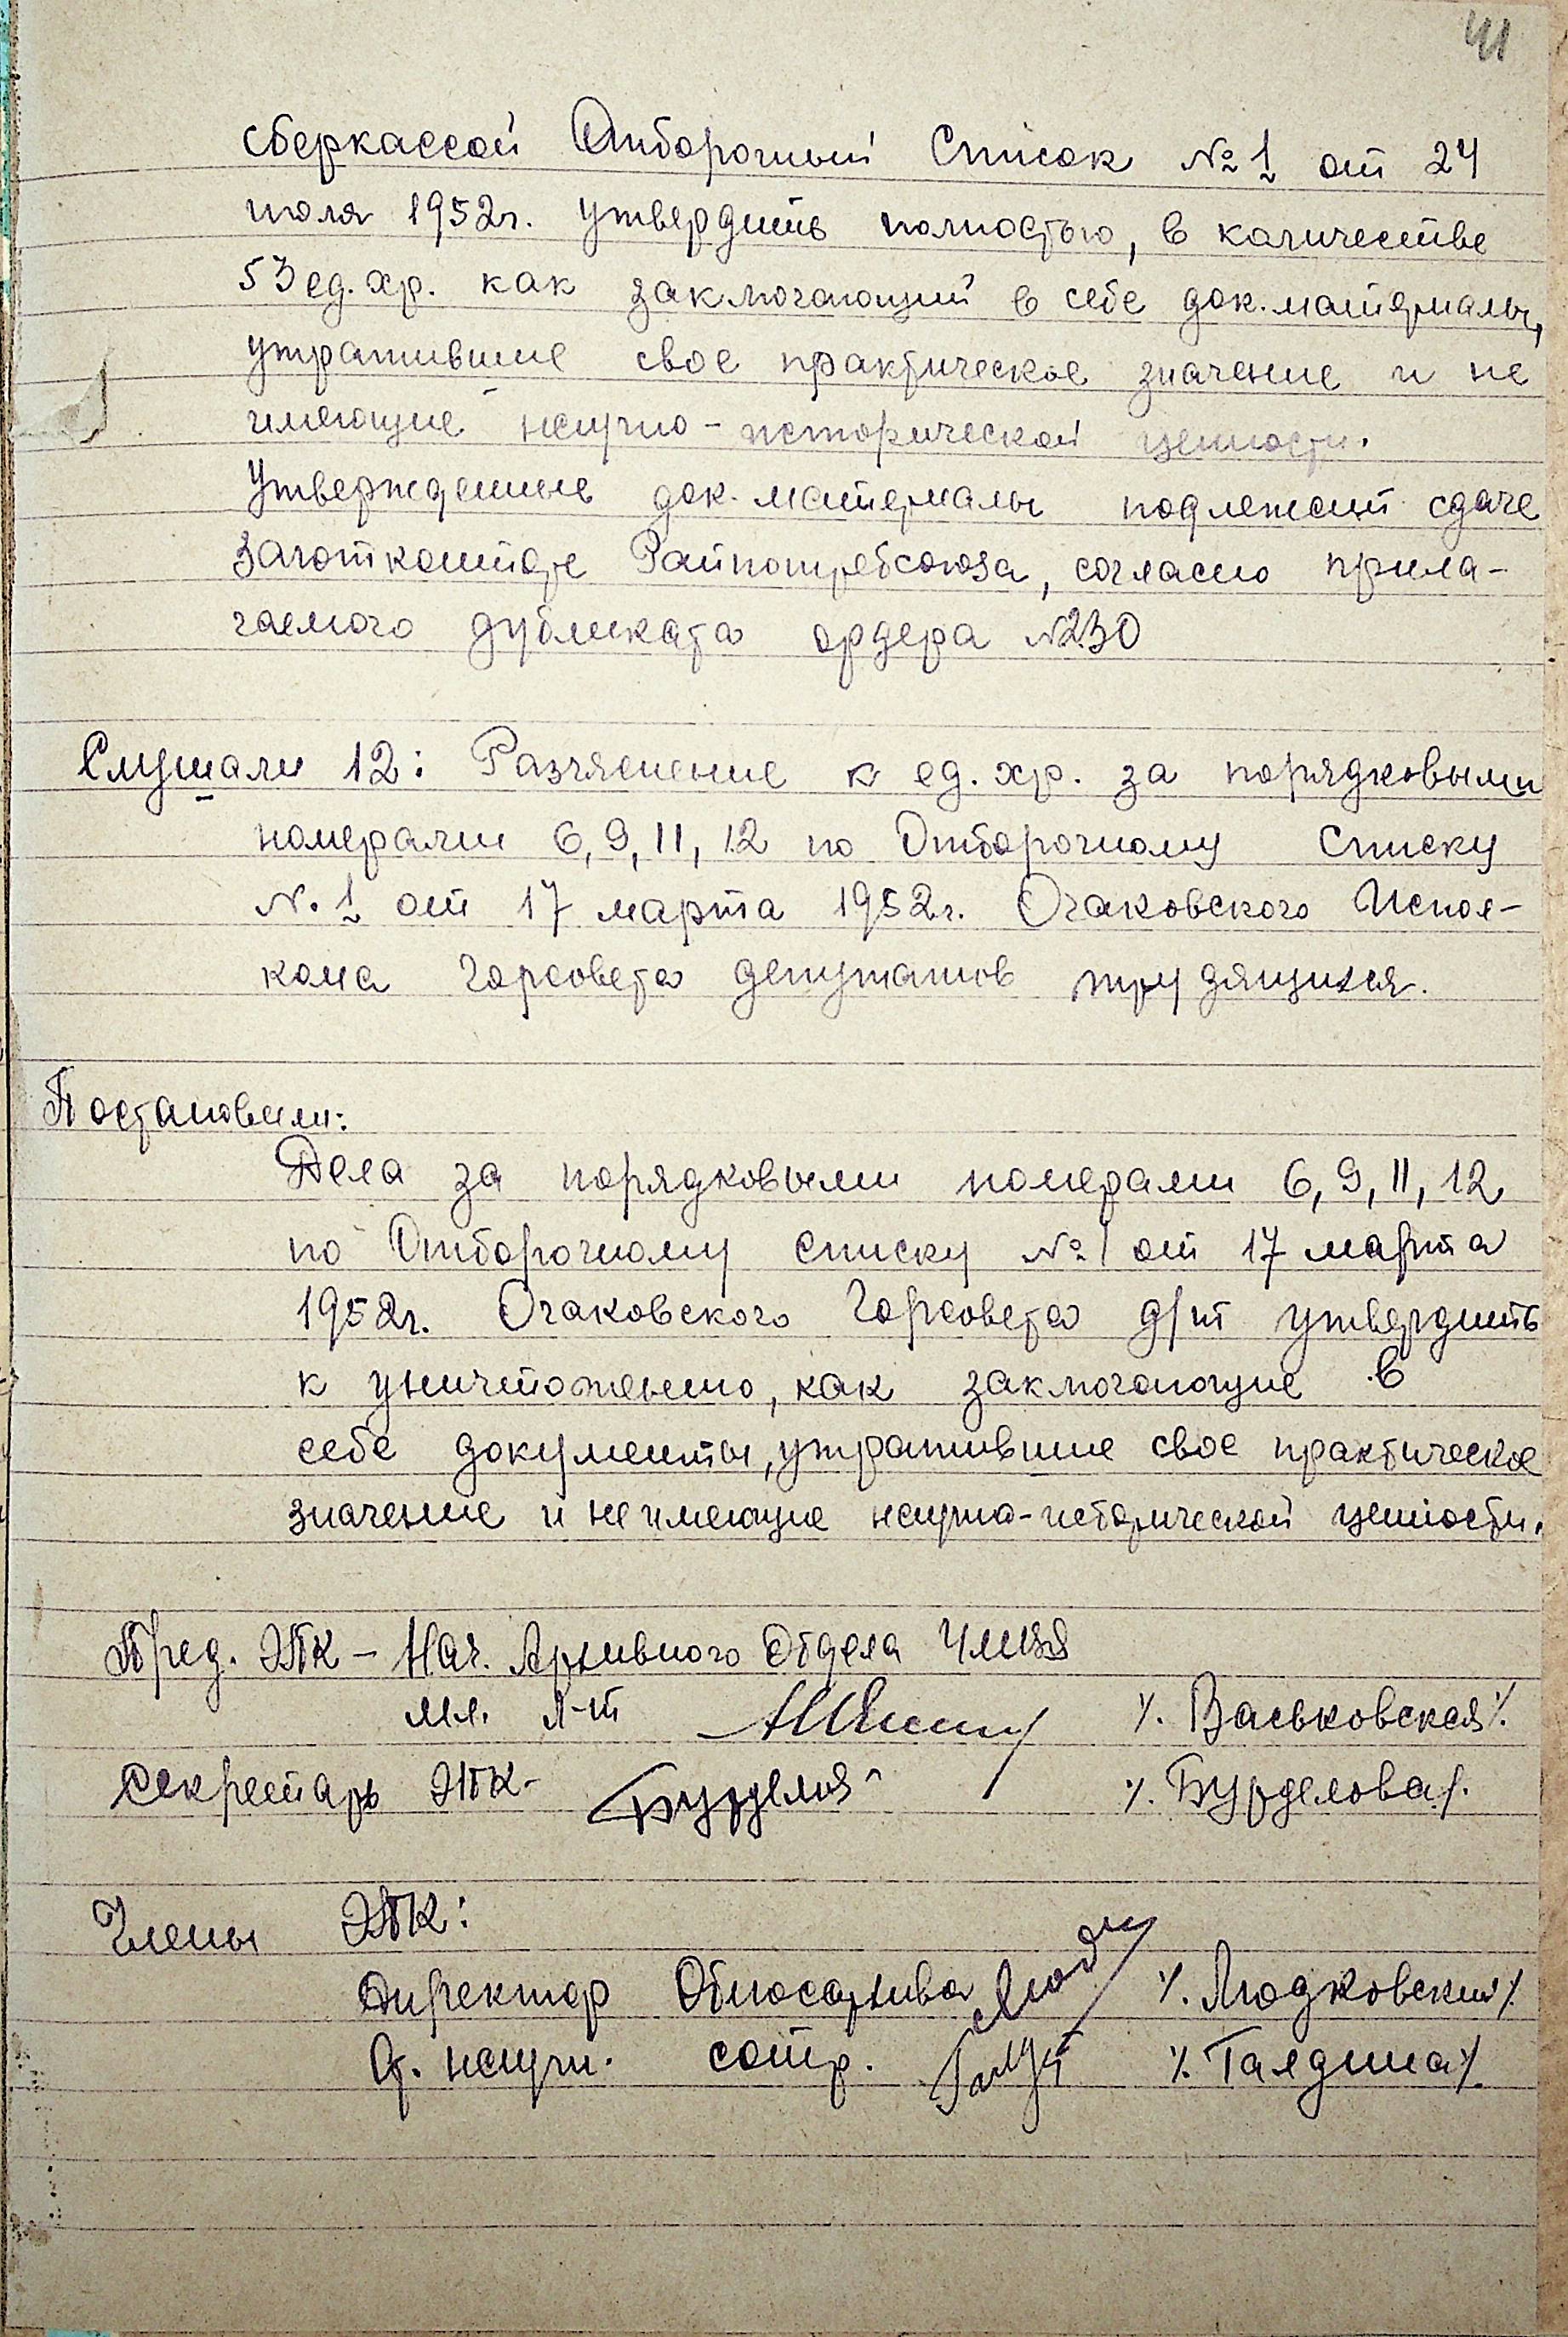 41
сберкассой Отборочный Список №1 от 24
июля 1952г. утвердить полностью, в количестве
53 ед. хр. как заключающий в себе док. материалы,
утратившие свое практическое значение и не
имеющие научно-исторической ценности.
Утвержденные док. материалы подлежат сдаче
Заготконторе Райпотребсоюза, согласно прила-
гаемого дубликата ордера №230
Слушали 12: Разъяснение к ед. хр. за порядковыми
номерами 6, 9, 11, 12 по Отборочному Списку
№1 от 17 марта 1952г. Очаковского Испол-
кома Горсовета депутатов трудящихся.
Постановили:
Дела за порядковыми номерами 6, 9, 11, 12
по Отборочному списку №1 от 17 марта
1952г. Очаковского Горсовета д/т утвердить
к уничтожению, как заключающие в
себе документы, утратившие свое практическое
значение и не имеющие научно-исторической ценности.
Пред. ЭПК - Нач. Архивного Отдела УМГБ
мл. л-т /. Васьковская/.
Секретарь ЭПК - /. Бурделова/.
Члены ЭПК:
Директор Облгосархива /. Людковский/.
Ст. научн. сотр. /. Галдина/.